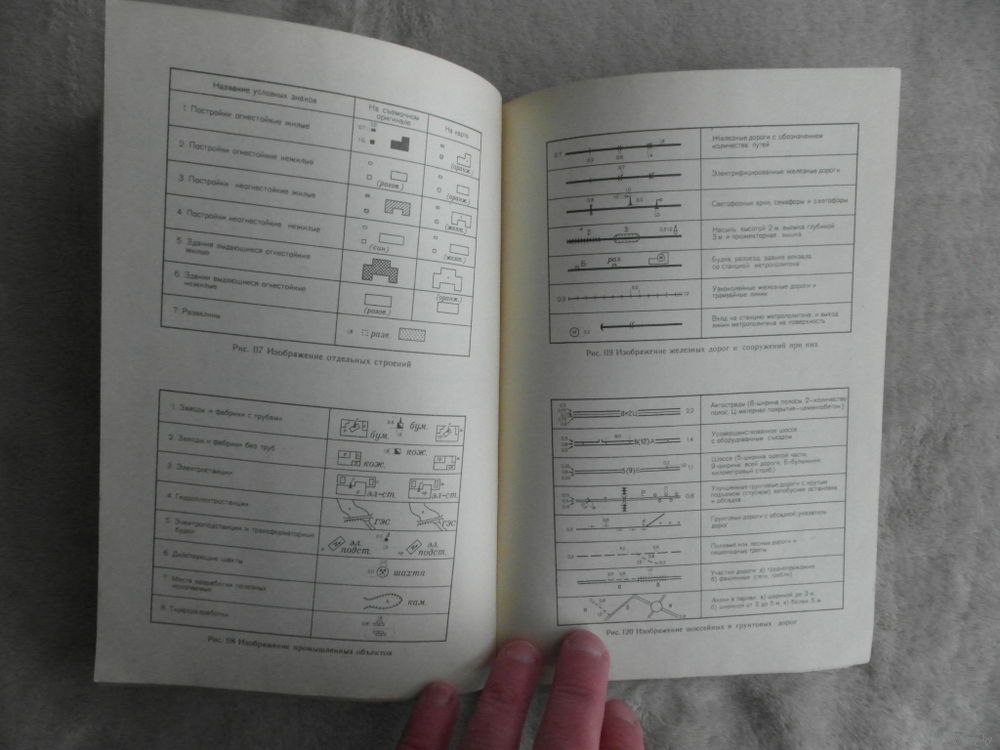 Название условных знаков
На съемочном оригинале
На карте
1. Постройки огнестойкие жилые
(оранж.)
2. Постройки огнестойкие нежилые
(розов.)
(оранж.)
3. Постройки неогнестойкие жилые
(желт.)
4. Постройки неогнестойкие нежилые
(син)
(желт.)
5. Здания выдающиеся огнестойкие
жилые
6. Здания выдающиеся огнестойкие
нежилые
(розов.)
(оранж.)
7. Развалины
разв.
Рис. 117 Изображение отдельных строений
1. Заводы и фабрики с трубами
бум.
бум.
2. Заводы и фабрики без труб
кож.
кож.
3. Электростанции
эл-ст.
эл-ст.
4. Гидроэлектростанции
ГЭС
ГЭС
5. Электроподстанции и трансформаторные
будки
эл.
подст.
эл.
подст.
6. Действующие шахты
шахта
7. Места разработки полезных
ископаемых
кам.
8. Торфоразработки
Рис. 118 Изображение промышленных объектов
Железные дороги с обозначением
количества путей
Электрифицированные железные дороги
Светофорные арки, семафоры и светофоры
Насыпь высотой 2 м, выемка глубиной
3 м и прожекторная вышка
Б
раз.
Будка, разъезд, здание вокзала
со станцией метрополитена
Узкоколейные железные дороги и
трамвайные линии
Вход на станцию метрополитена и выход
линии метрополитена на поверхность
Рис. 119 Изображение железных дорог и сооружений при них
8×2Ц
2,2
Автострады (8-ширина полосы, 2-количество
полос, Ц-материал покрытия-цементобетон)
8(12)А
1,4
Усовершенствованное шоссе
с оборудованным съездом
5(9)Б
1,1
Шоссе (5-ширина одетой части,
9-ширина всей дороги, Б-булыжник,
километровый столб)
0,8
Улучшенные грунтовые дороги с крутым
подъемом (спуском), автобусная остановка
и обсадка
Грунтовая дорога с обсадкой, указатели
дорог
Полевые или лесные дороги и
пешеходные тропы
Участки дороги: а) труднопроезжие
б) фашинные (гати, гребли)
Аллеи в парках: а) шириной до 3 м
б) шириной от 3 до 5 м, в) более 5 м
Рис. 120 Изображение шоссейных и грунтовых дорог